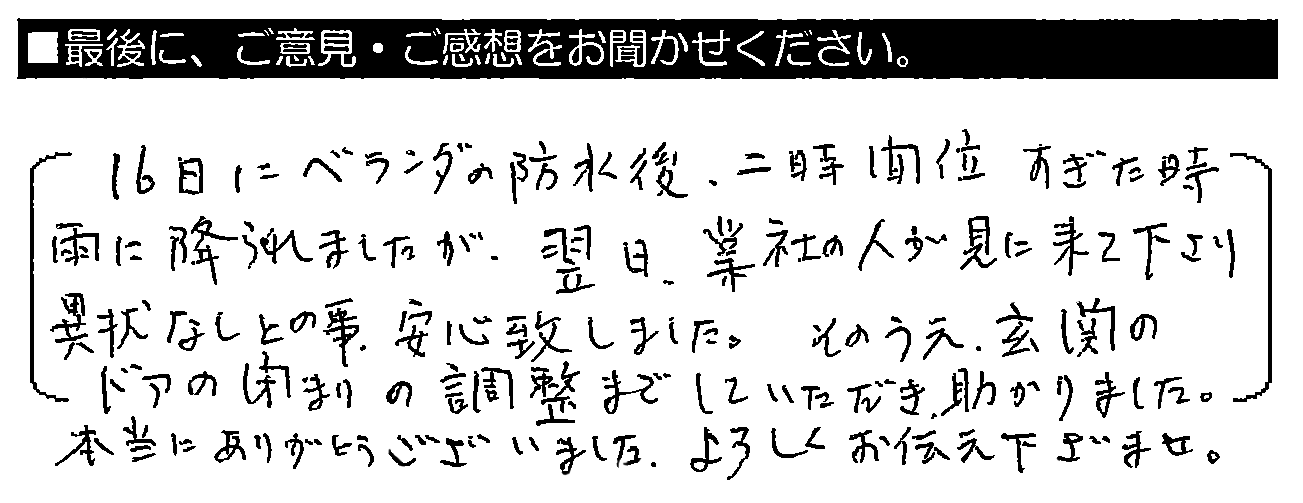 ■最後に、ご意見・ご感想をお聞かせください。
16日にベランダの防水後、二時間位すぎた時
雨に降られましたが、翌日、業社の人が見に来て下さり
異状なしとの事、安心致しました。そのうえ、玄関の
ドアの閉まりの調整までしていただき、助かりました。
本当にありがとうございました、よろしくお伝え下さいませ。